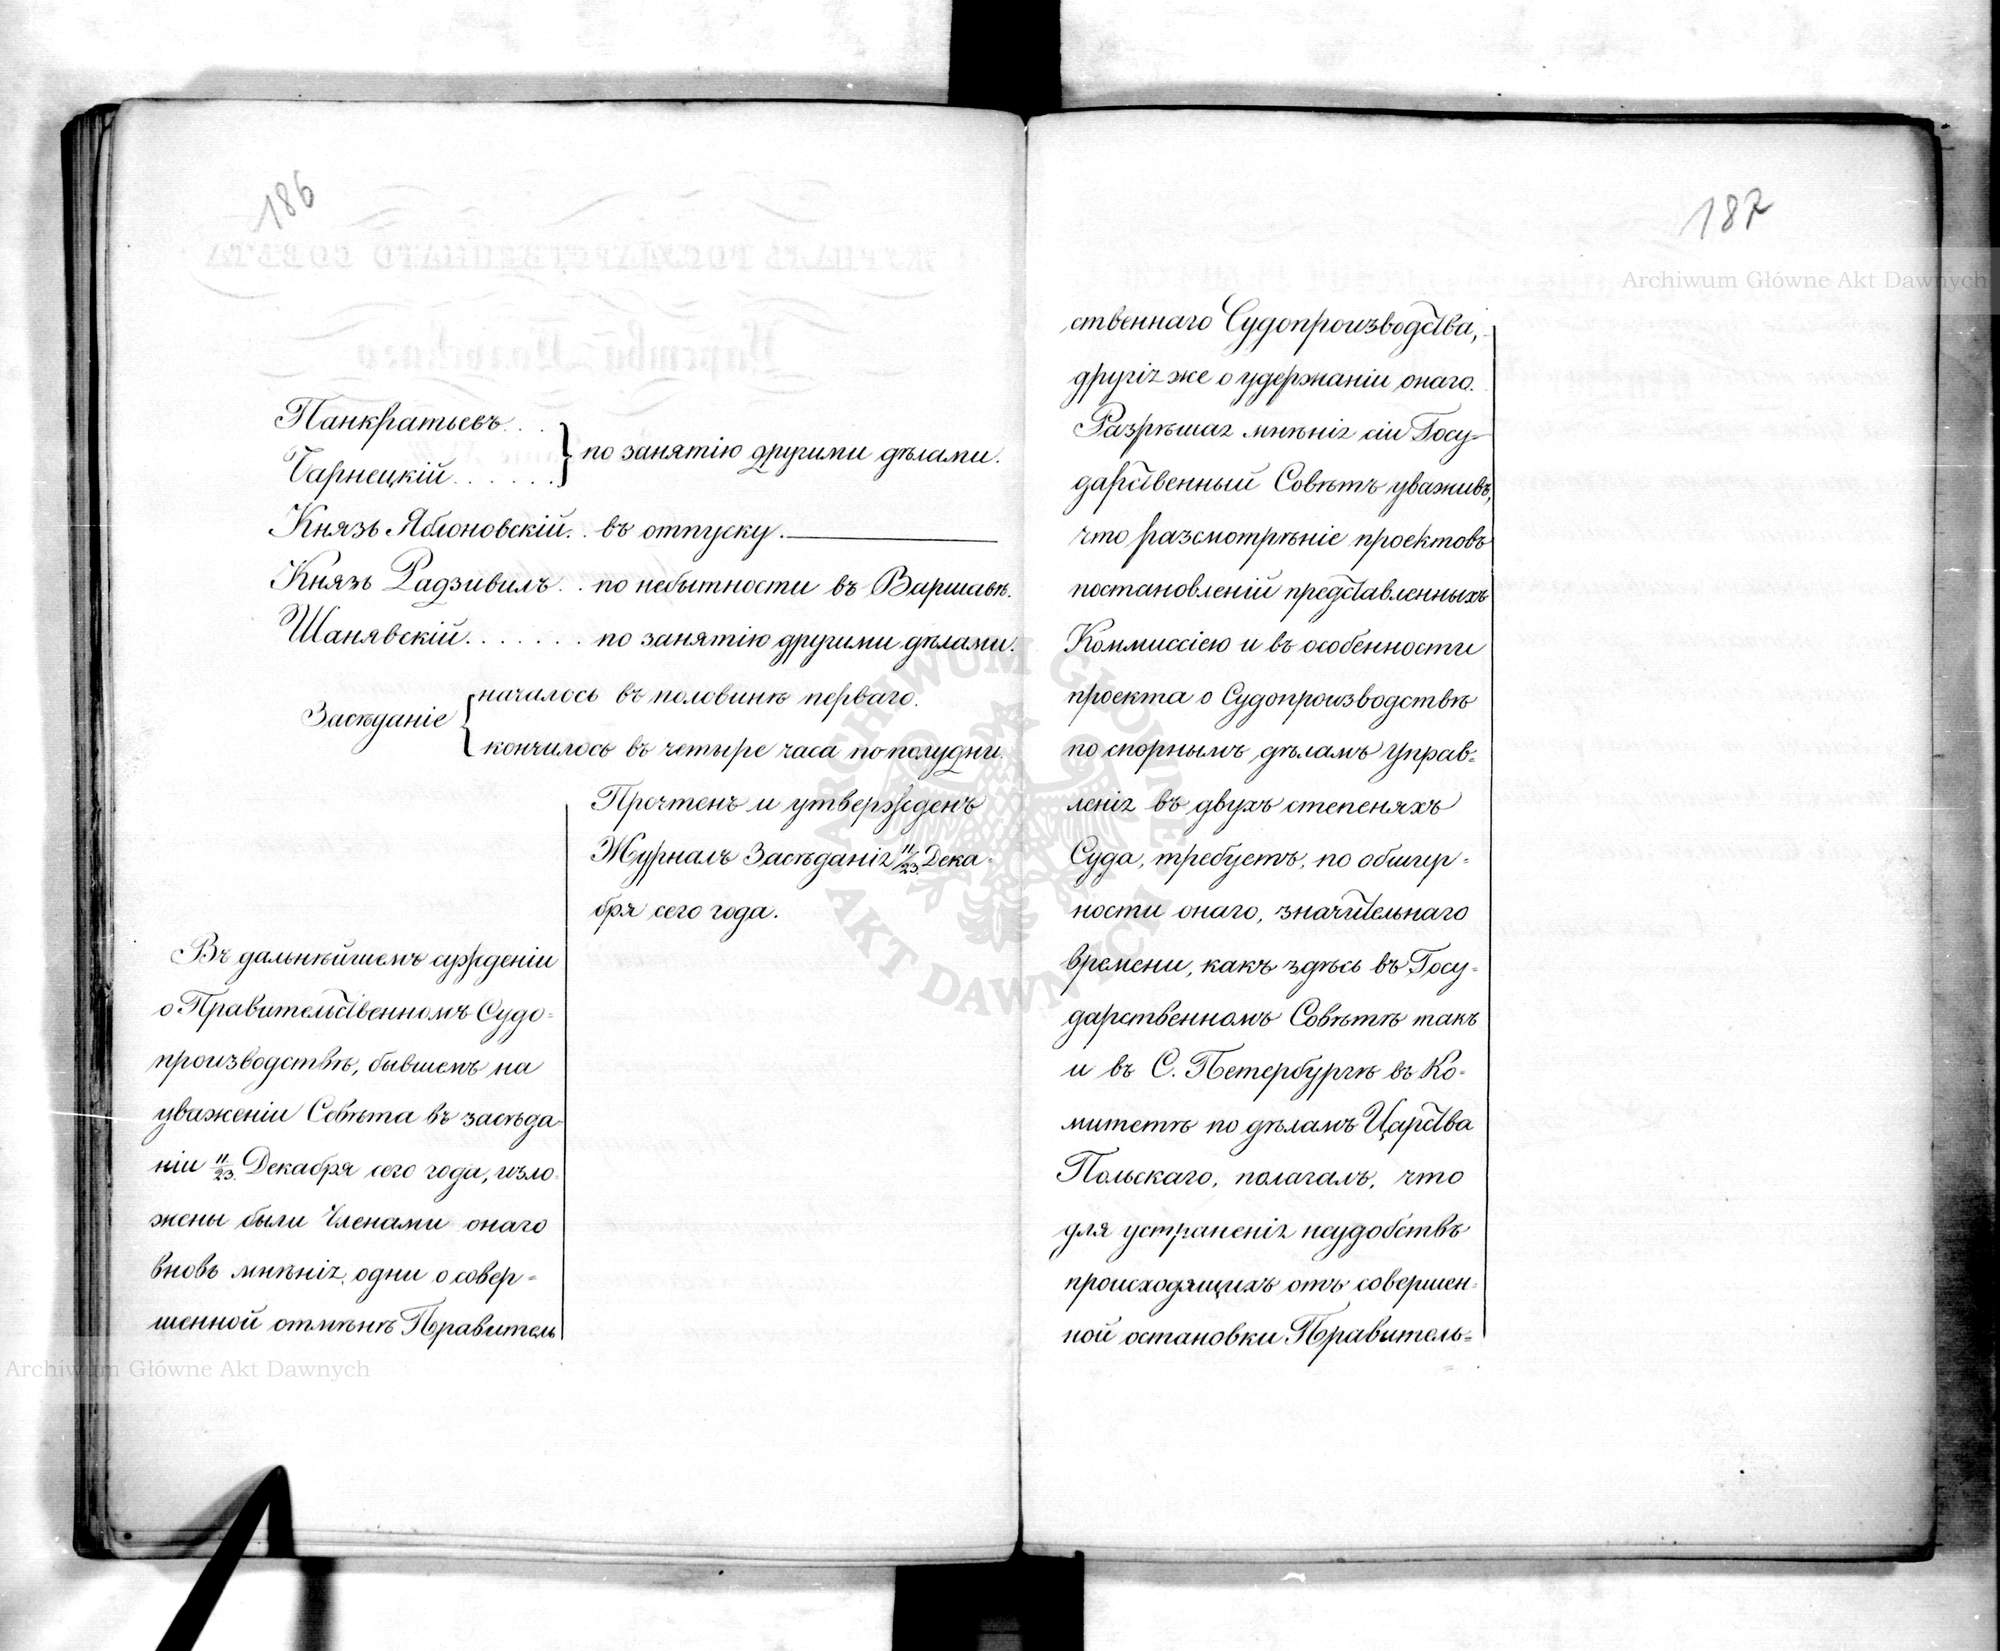 186
Панкратьевъ . . .
Чарнецкій . . . . . . } по занятію другими дѣлами.
Князь Яблоновскій . . въ отпуску.
Князь Радзивилъ . . по небытности въ Варшавѣ.
Шанявскій . . . . . . . по занятію другими дѣлами.
Засѣданіе { началось въ половинѣ перваго.
кончилось въ четыре часа по полудни.
Прочтенъ и утвержденъ
Журналъ Засѣданія 11/23. Дека-
бря сего года.
Въ дальнѣйшемъ сужденіи
о Правительственномъ Судо-
производствѣ, бывшемъ на
уваженіи Совѣта въ засѣда-
ніи 11/23. Декабря сего года, изло-
жены были Членами онаго
вновь мнѣнія, одни о совер-
шенной отмѣнѣ Правитель
187
ственнаго Судопроизводства,
другія же о удержаніи онаго.
Разрѣшая мнѣнія сіи Госу-
дарственный Совѣтъ уваживъ,
что разсмотрѣніе проектовъ
постановленій представленныхъ
Коммиссіею и въ особенности
проекта о Судопроизводствѣ
по спорнымъ дѣламъ Управ-
ленія въ двухъ степеняхъ
Суда, требуетъ, по обшир-
ности онаго, значительнаго
времени, какъ здѣсь въ Госу-
дарственномъ Совѣтѣ такъ
и въ С. Петербургѣ въ Ко-
митетѣ по дѣламъ Царства
Польскаго, полагалъ, что
для устраненія неудобствъ
происходящихъ отъ совершен-
ной остановки Правитель-
Archiwum Główne Akt Dawnych
ARCHIWUM GŁÓWNE AKT DAWNYCH
Archiwum Główne Akt Dawnych